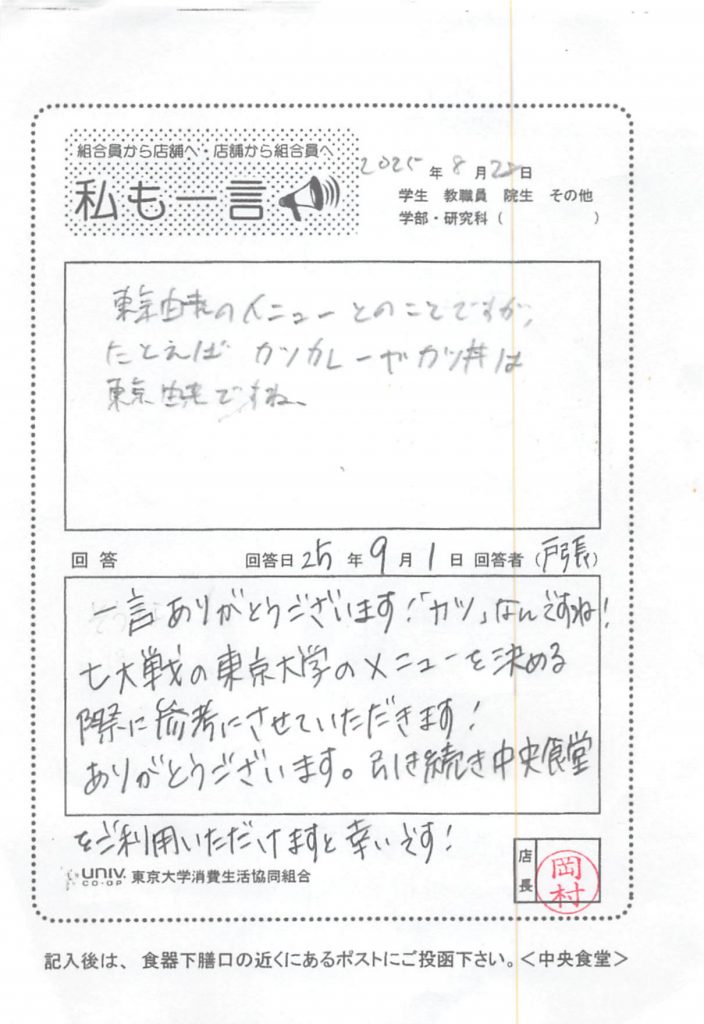 組合員から店舗へ・店舗から組合員へ
私も一言
2025年8月22日
学生 教職員 院生 その他
学部・研究科（ ）
東京由来のメニューとのことですが、
たとえば カツカレーやカツ丼は
東京由来ですね。
回答 回答日 25年9月1日 回答者（戸張）
一言ありがとうございます！「カツ」なんですね！
七大戦の東京大学のメニューを決める
際に参考にさせていただきます！
ありがとうございます。引き続き中央食堂
をご利用いただけますと幸いです！
UNIV. CO-OP 東京大学消費生活協同組合
店長
岡村
記入後は、食器下膳口の近くにあるポストにご投函下さい。＜中央食堂＞